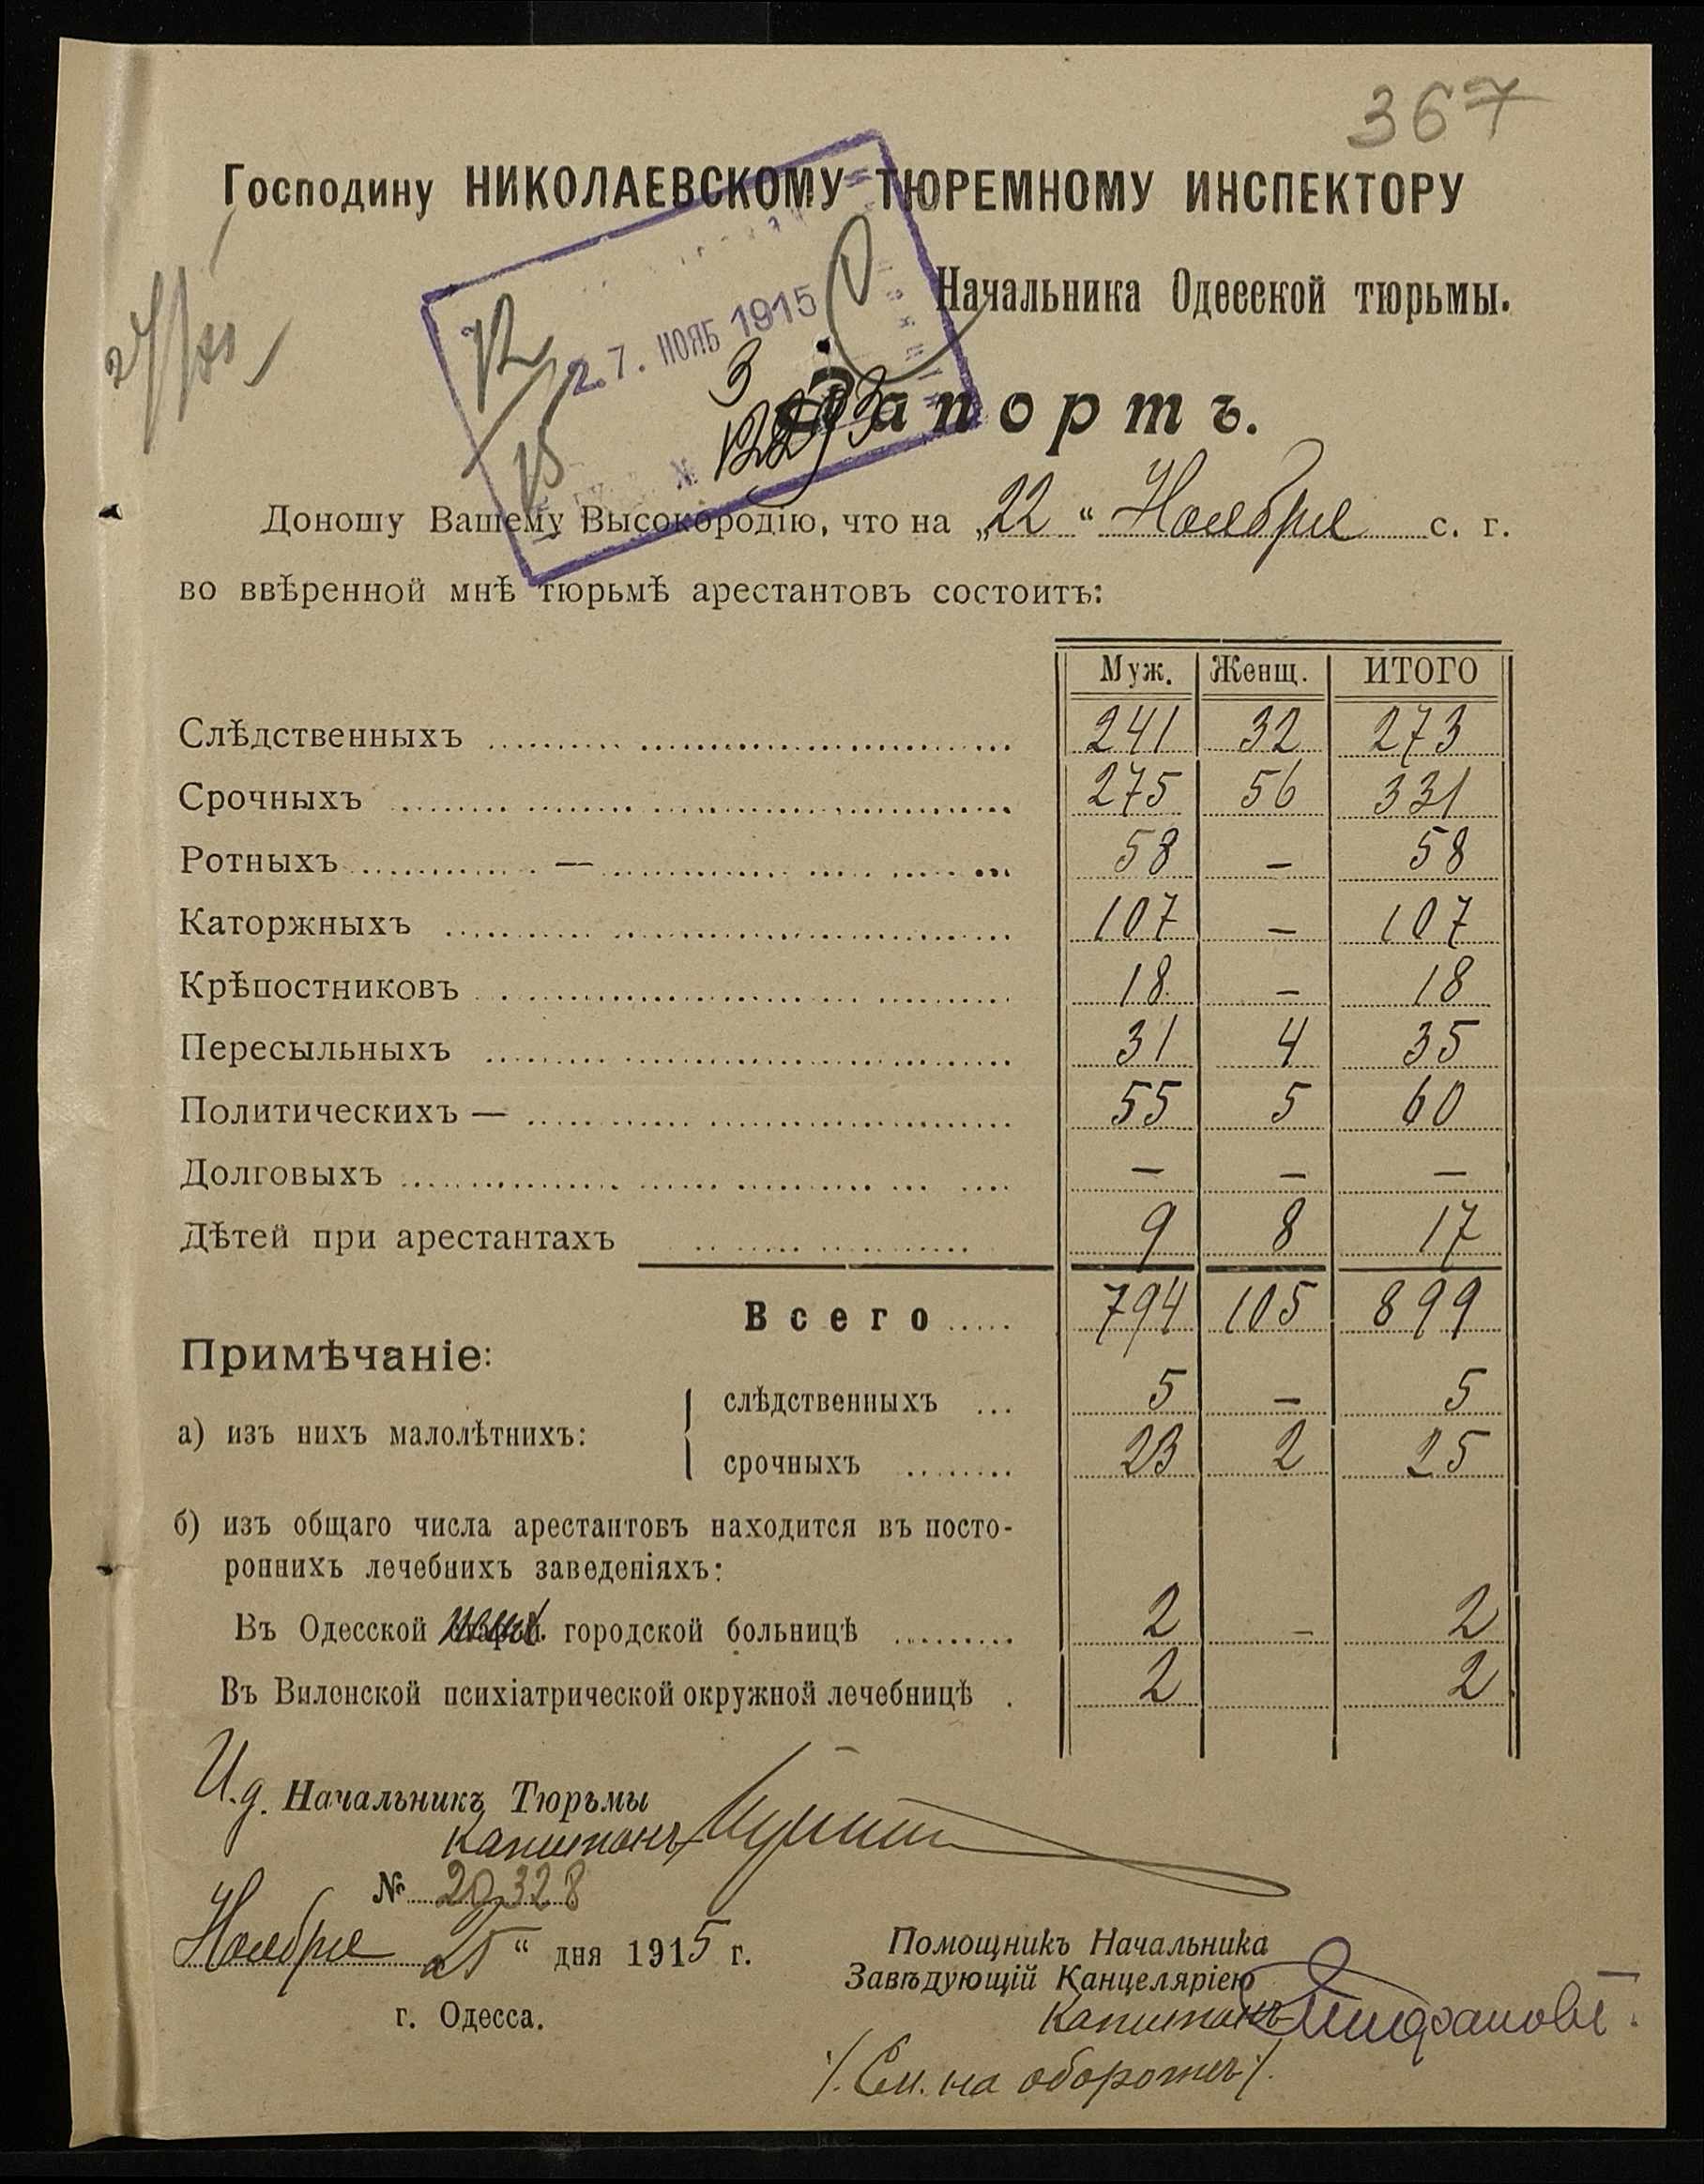 367
Господину НИКОЛАЕВСКОМУ ТЮРЕМНОМУ ИНСПЕКТОРУ
Начальника Одесской тюрьмы.
27. НОЯБ 1915
Рапортъ.
Доношу Вашему Высокородію, что на „22“ Ноября с. г.
во ввѣренной мнѣ тюрьмѣ арестантовъ состоитъ:
Муж. Женщ. ИТОГО
Слѣдственныхъ 241 32 273
Срочныхъ 275 56 331
Ротныхъ — 58 — 58
Каторжныхъ 107 — 107
Крѣпостниковъ 18 — 18
Пересыльныхъ 31 4 35
Политическихъ — 55 5 60
Долговыхъ — — —
Дѣтей при арестантахъ 9 8 17
Всего 794 105 899
Примѣчаніе:
а) изъ нихъ малолѣтнихъ: слѣдственныхъ 5 — 5
срочныхъ 23 2 25
б) изъ общаго числа арестантовъ находится въ посто-
роннихъ лечебныхъ заведеніяхъ:
Въ Одесской городской больницѣ 2 — 2
Въ Виленской психіатрической окружной лечебницѣ 2 2
И.д. Начальникъ Тюрьмы
Капитанъ
№ 20328
Ноября 25“ дня 1915 г.
г. Одесса.
Помощникъ Начальника
Завѣдующій Канцеляріею
Капитанъ
/. См. на оборотѣ /.